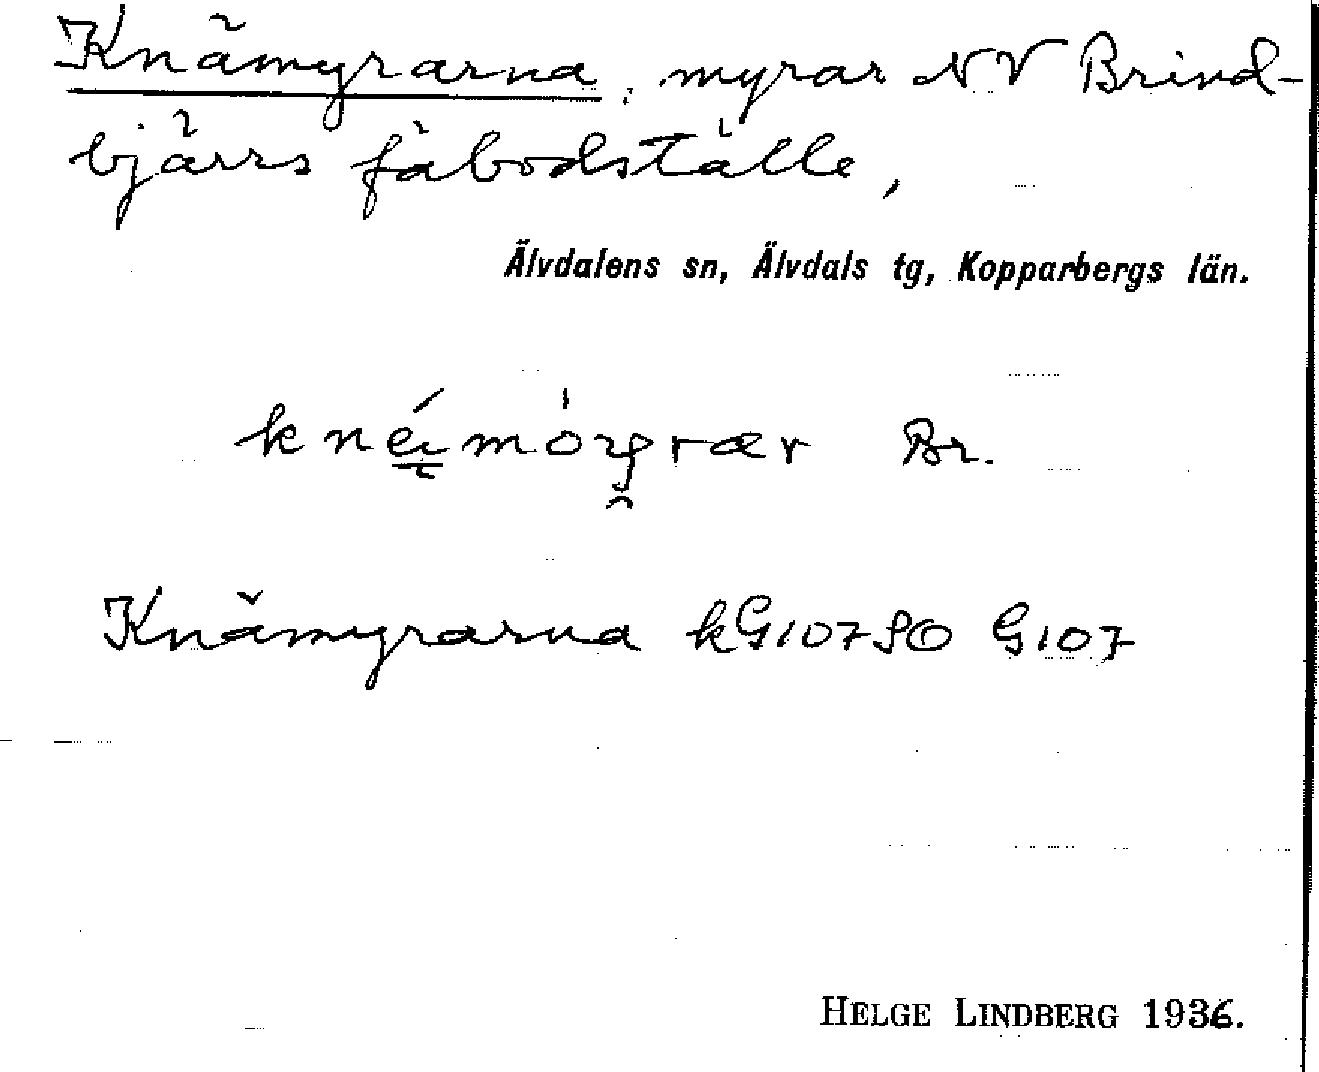 Knämyrarna, myrar NV Brind-
bjärrs fäbodställe,
Älvdalens sn, Älvdals tg, Kopparbergs län.
Br.
Knämyrarna kG107SO G107
HELGE LINDBERG 1936.